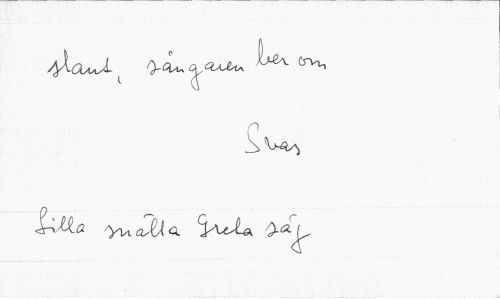 slant, sångaren ber om
Svar
Lilla snälla Greta säj